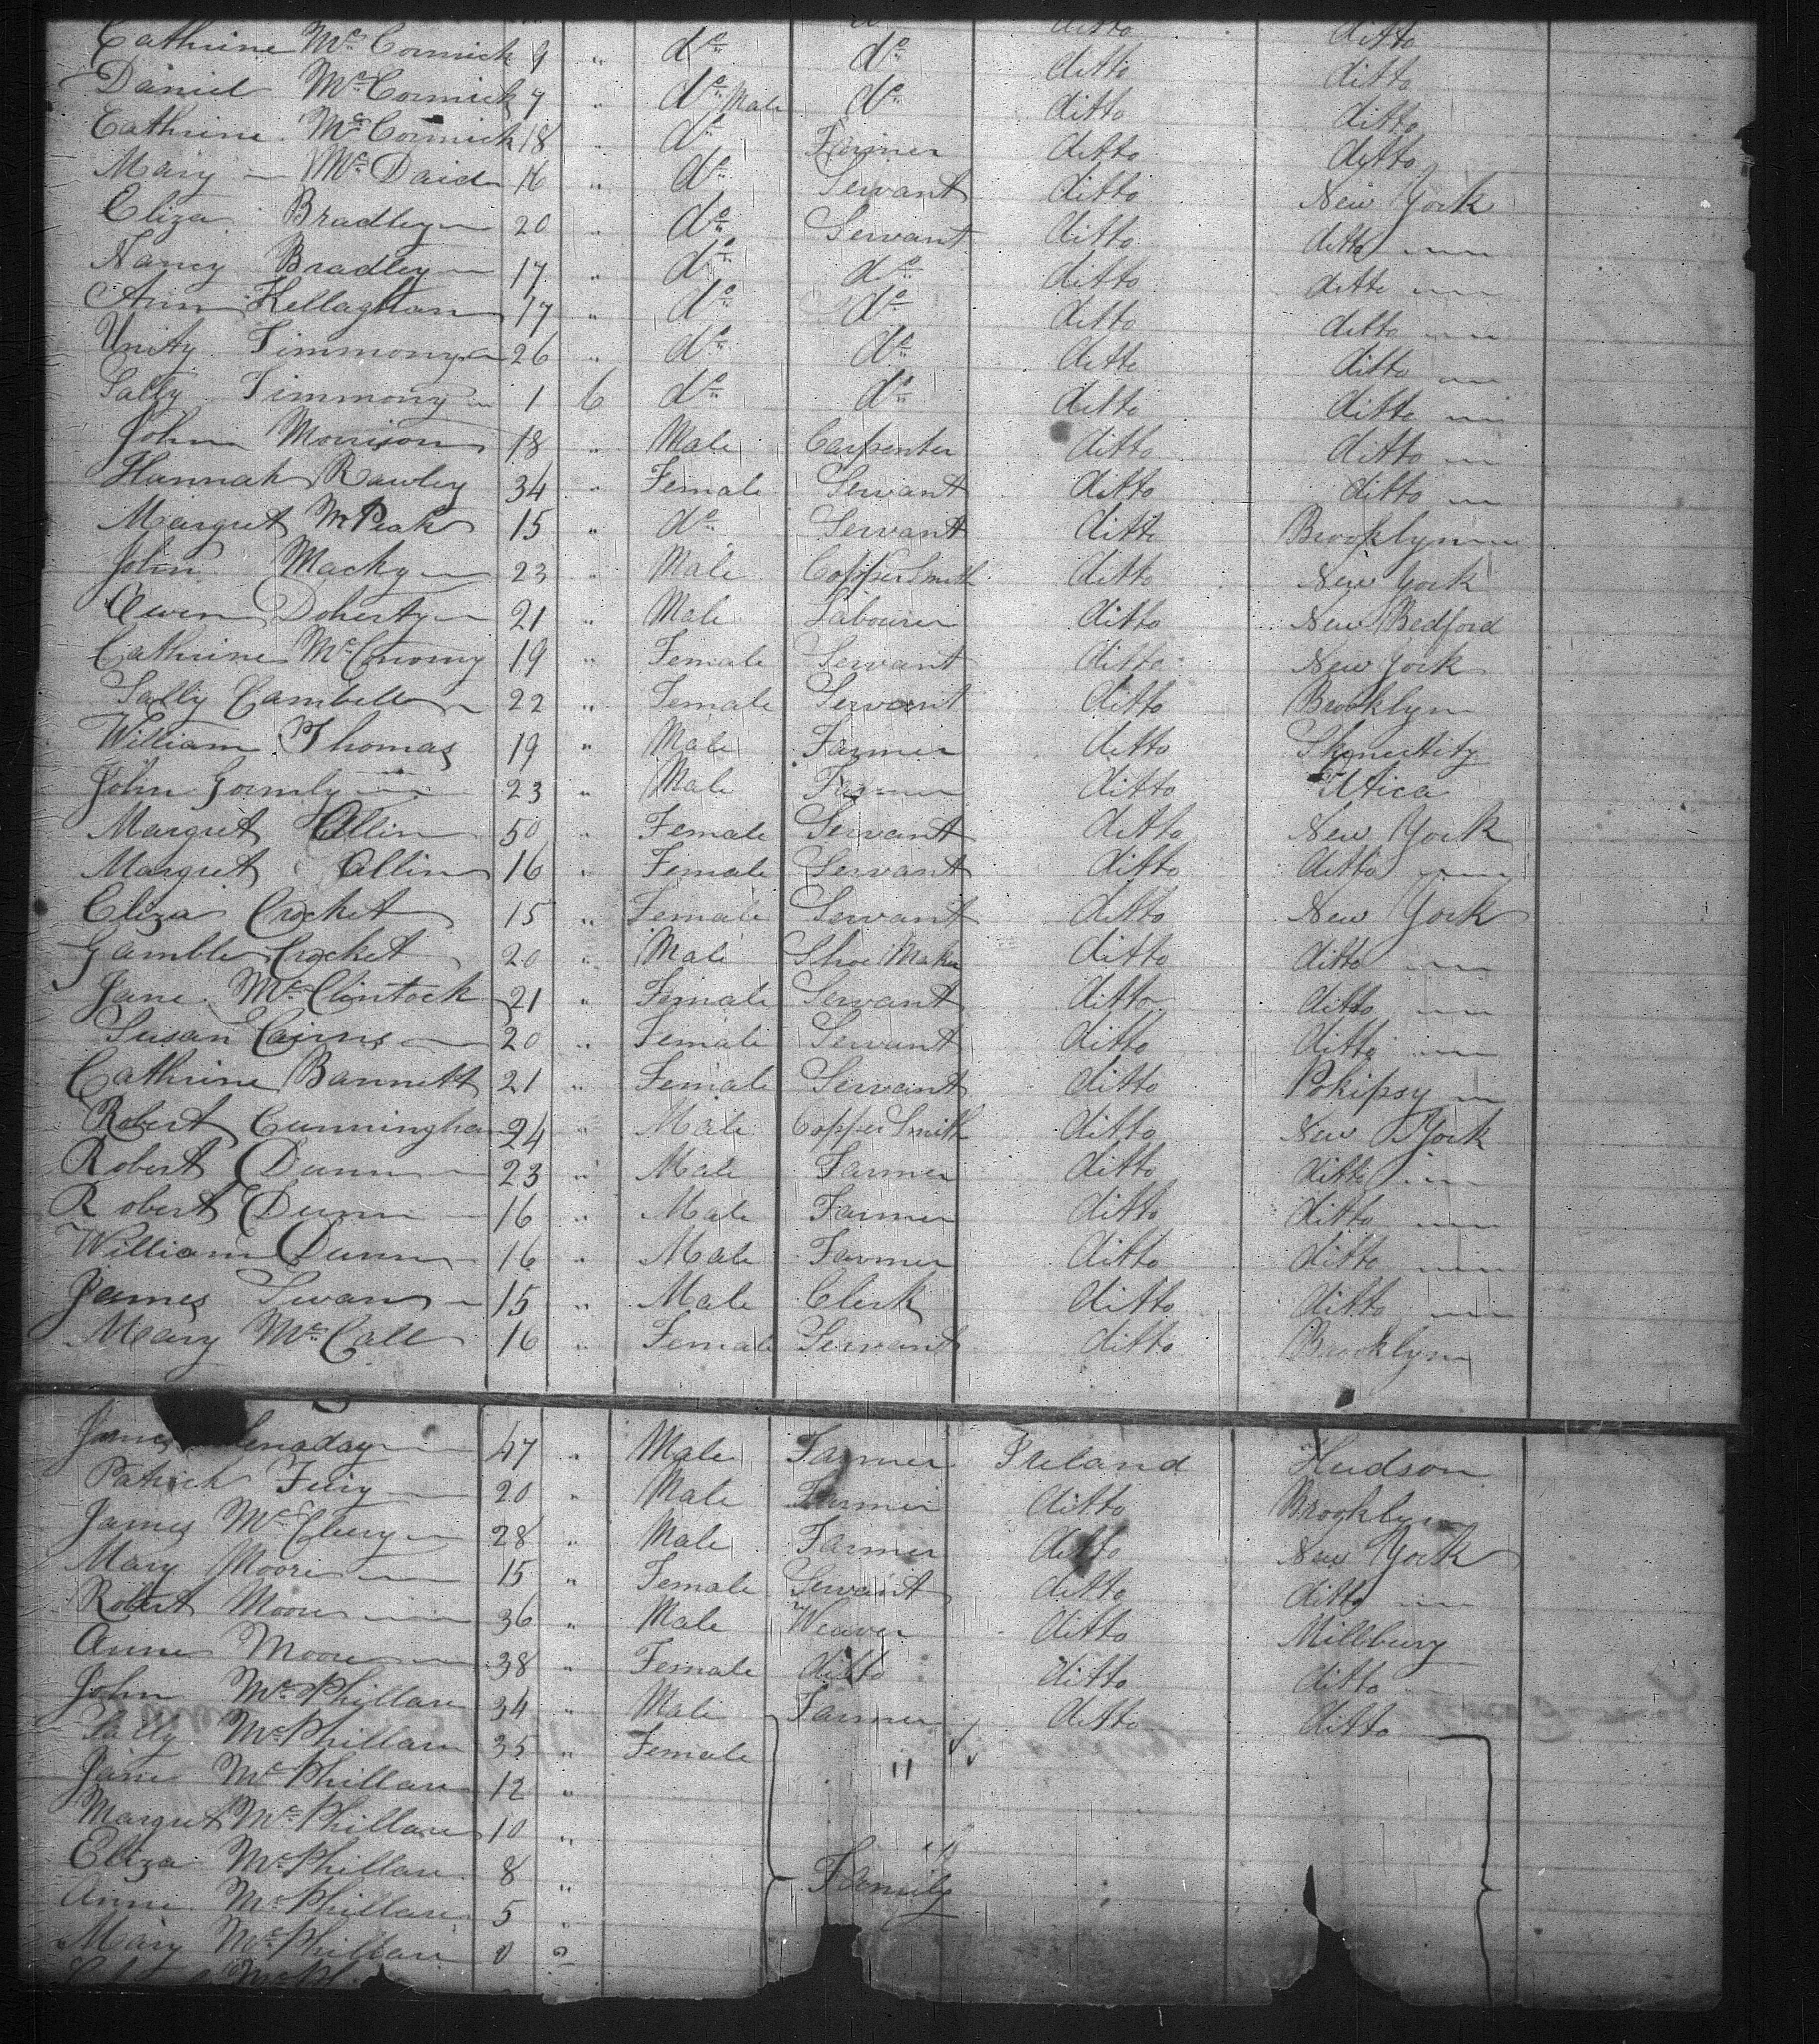 ditto ditto
Cathrine Mc Cormick 9 " do do ditto ditto
Daniel Mc Cormick 7 " do Male do ditto ditto
Cathrine Mc Cormick 18 " do Farmer ditto ditto
Mary Mc Daid 16 " do Servant ditto New York
Eliza Bradley 20 " do Servant ditto ditto
Nancy Bradley 17 " do do ditto ditto
Ann Kellaghan 17 " do do ditto ditto
Unity Timmony 26 " do do ditto ditto
Sally Timmony 1 6 do do ditto ditto
John Morrison 18 " Male Carpenter ditto ditto
Hannah Rawley 34 " Female Servant ditto ditto
Margret McPeak 15 " do Servant ditto Brooklyn
John Macky 23 " Male Copper Smith ditto New York
Owen Doherty 21 " Male Labourer ditto New Bedford
Cathrine Mc Conomy 19 " Female Servant ditto New York
Sally Cambell 22 " Female Servant ditto Brooklyn
William Thomas 19 " Male Farmer ditto Skenectity
John Gormly 23 " Male Farmer ditto Utica
Margret Allin 50 " Female Servant ditto New York
Margret Allin 16 " Female Servant ditto ditto
Eliza Crocket 15 " Female Servant ditto New York
Gamble Crocket 20 " Male Shoe Maker ditto ditto
Jane Mc Clintock 21 " Female Servant ditto ditto
Susan Cairns 20 " Female Servant ditto ditto
Cathrine Bannett 21 " Female Servant ditto Pokipsy
Robert Cunningha 24 " Male Copper Smith ditto New York
Robert Dunn 23 " Male Farmer ditto ditto
Robert Dunn 16 " Male Farmer ditto ditto
William Dunn 16 " Male Farmer ditto ditto
James Swan 15 " Male Clerk ditto ditto
Mary Mc Call 16 " Female Servant ditto Brooklyn
James 47 " Male Farmer Ireland Hudson
Patrick 20 " Male Farmer ditto Brooklyn
James 28 " Male Farmer ditto New York
Mary Moore 15 " Female Servant ditto ditto
Robert Moore 36 " Male Weaver ditto Millbury
Anne Moore 38 " Female ditto ditto ditto
John Mc Phillan 34 " Male Farmer ditto ditto
Sally Mc Phillan 35 " Female
Jane Mc Phillan 12 " 11
Margret Mc Phillan 10 "
Eliza Mc Phillan 8 " Family
Anne Mc Phillan 5 "
Mary Mc Phillan 0 2